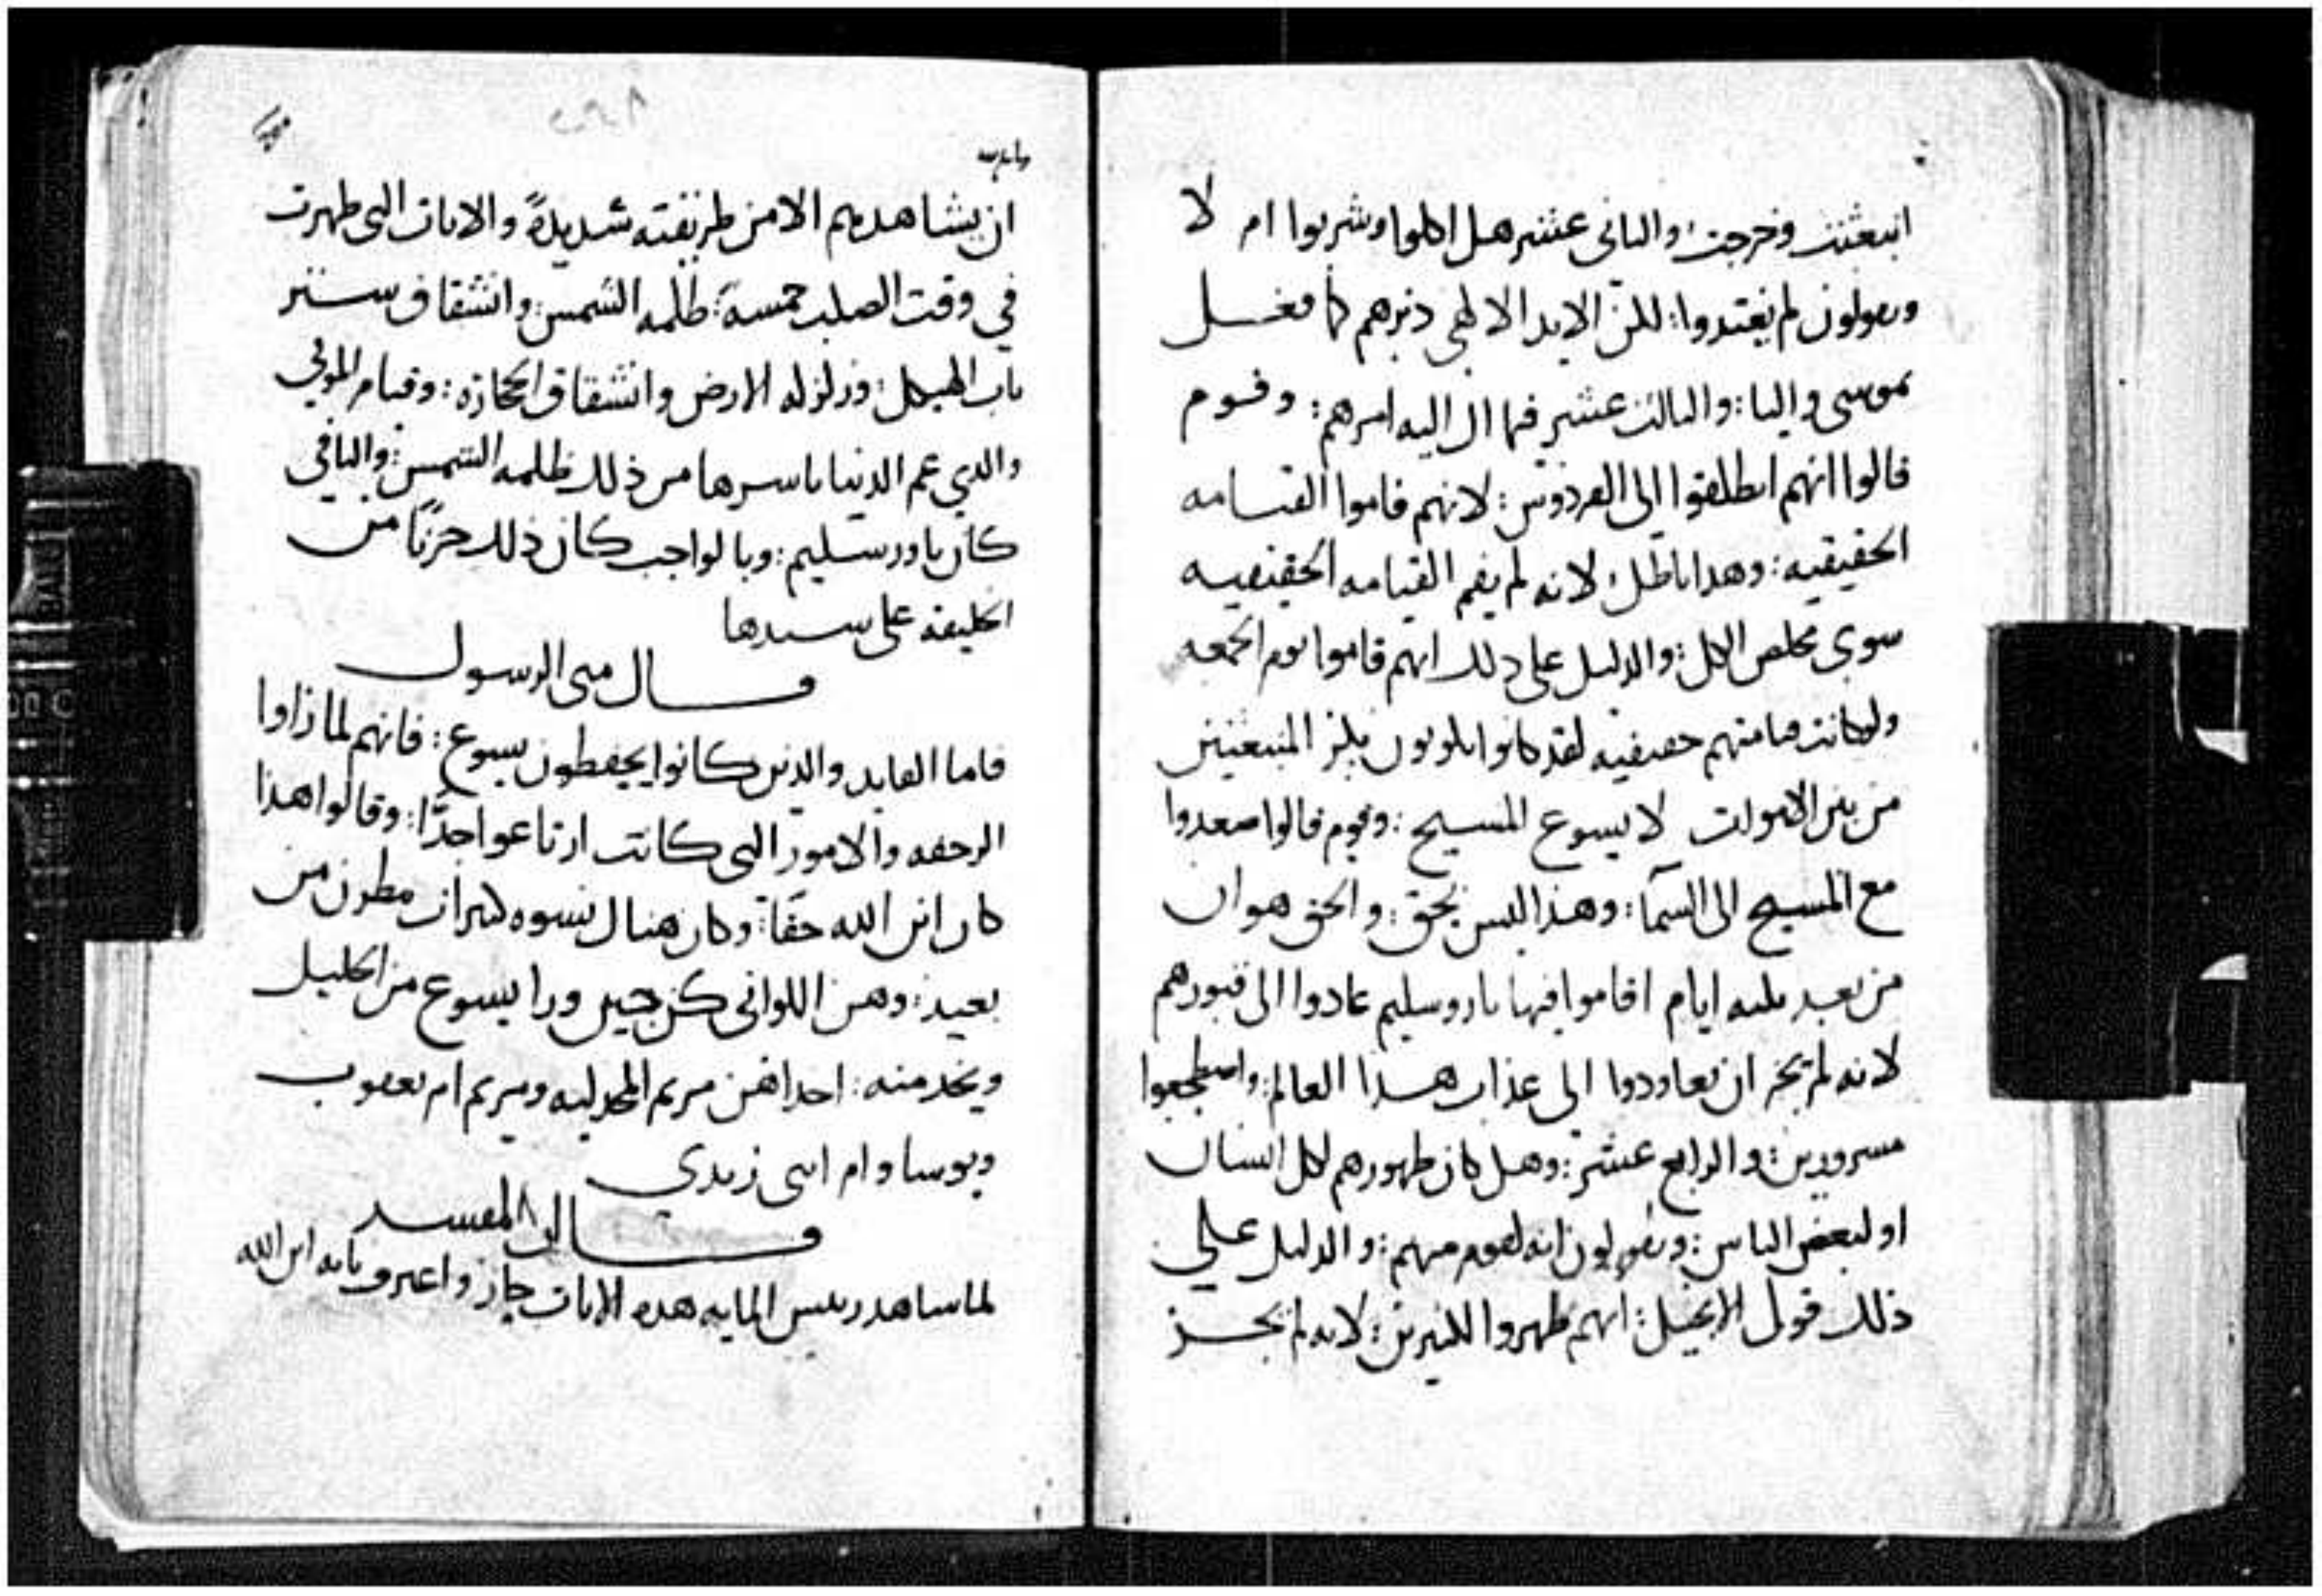 انبعثت وخرجت: والثاني عشر هل اكلوا وشربوا ام لا
ويقولون لم يغتدوا: لكن الايد الالهي دبرهم كما فعل
بموسى وايليا: والثالث عشر فيما ال اليه امرهم: وقوم
قالوا انهم انطلقوا الى الفردوس: لانهم قاموا القيامه
الحقيقيه: وهدا باطل لانه لم يقم القيامه الحقيقيه
سوى مخلص الكل: والدليل على دلك انهم قاموا يوم الجمعه
ولو كانت قيامتهم حقيقيه لقد كانوا يكونون بكر المنبعثين
من بين الاموات لا يسوع المسيح: وقوم قالوا صعدوا
مع المسيح الى السمآ: وهذا ليس بحق: والحق هو ان
من بعد ثلثه ايام اقاموا فيها باروسليم عادوا الى قبورهم
لانه لم يجز ان يعاودوا الى عذاب هذا العالم: واضطجعوا
مسرورين: والرابع عشر: وهل كان ظهورهم لكل انسان
او لبعض الناس: ويقولون انه لقوم منهم: والدليل على
ذلك قول الانجيل: انهم ظهروا لكثيرين: لانه لم يجز
ان يشاهدهم الا من طريقته شديدةً والايات التي ظهرت
في وقت الصلب خمسة: ظلمه الشمس: وانشقاق ستر
باب الهيكل: وزلزله الارض وانشقاق الحجاره: وقيام الموتي
والدي عم الدنيا باسرها من ذلك ظلمه الشمس: والباقي
كان باورسليم: وبالواجب كان ذلك حزنًا من
الخليقه على سيدها
قال متى الرسول
فاما القايد والدين كانوا يحفظون يسوع: فانهم لما راوا
الرجفه والامور التي كانت ارتاعوا جدًا: وقالوا هذا
كان ابن الله حقًا: وكان هناك نسوه كثيرات ينظرن من
بعيد: وهن اللواتي كن جين ورا يسوع من الجليل
ويخدمنه: احداهن مريم المجدليه ومريم ام يعقوب
ويوسا وام ابنى زبدي
قال المفسر
لما شاهد رييس المايه هده الايات حار واعترف بانه ابن الله